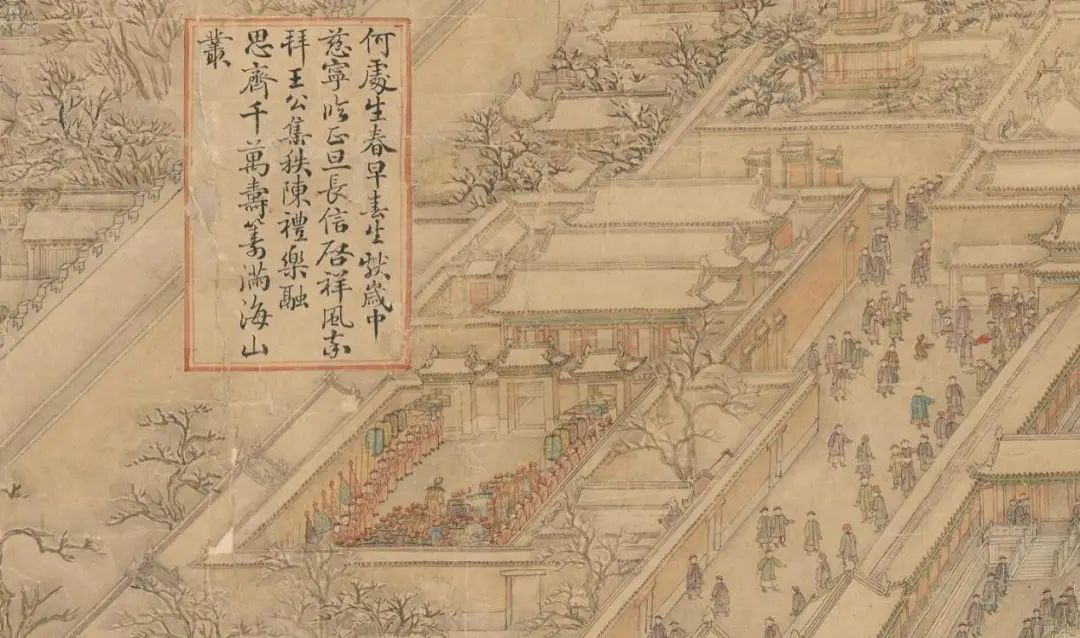 何處生春早春生獻歲中
慈寧臨正旦長信啟祥風
拜王公集秩陳禮樂融
思齊千萬壽籌滿海山
叢